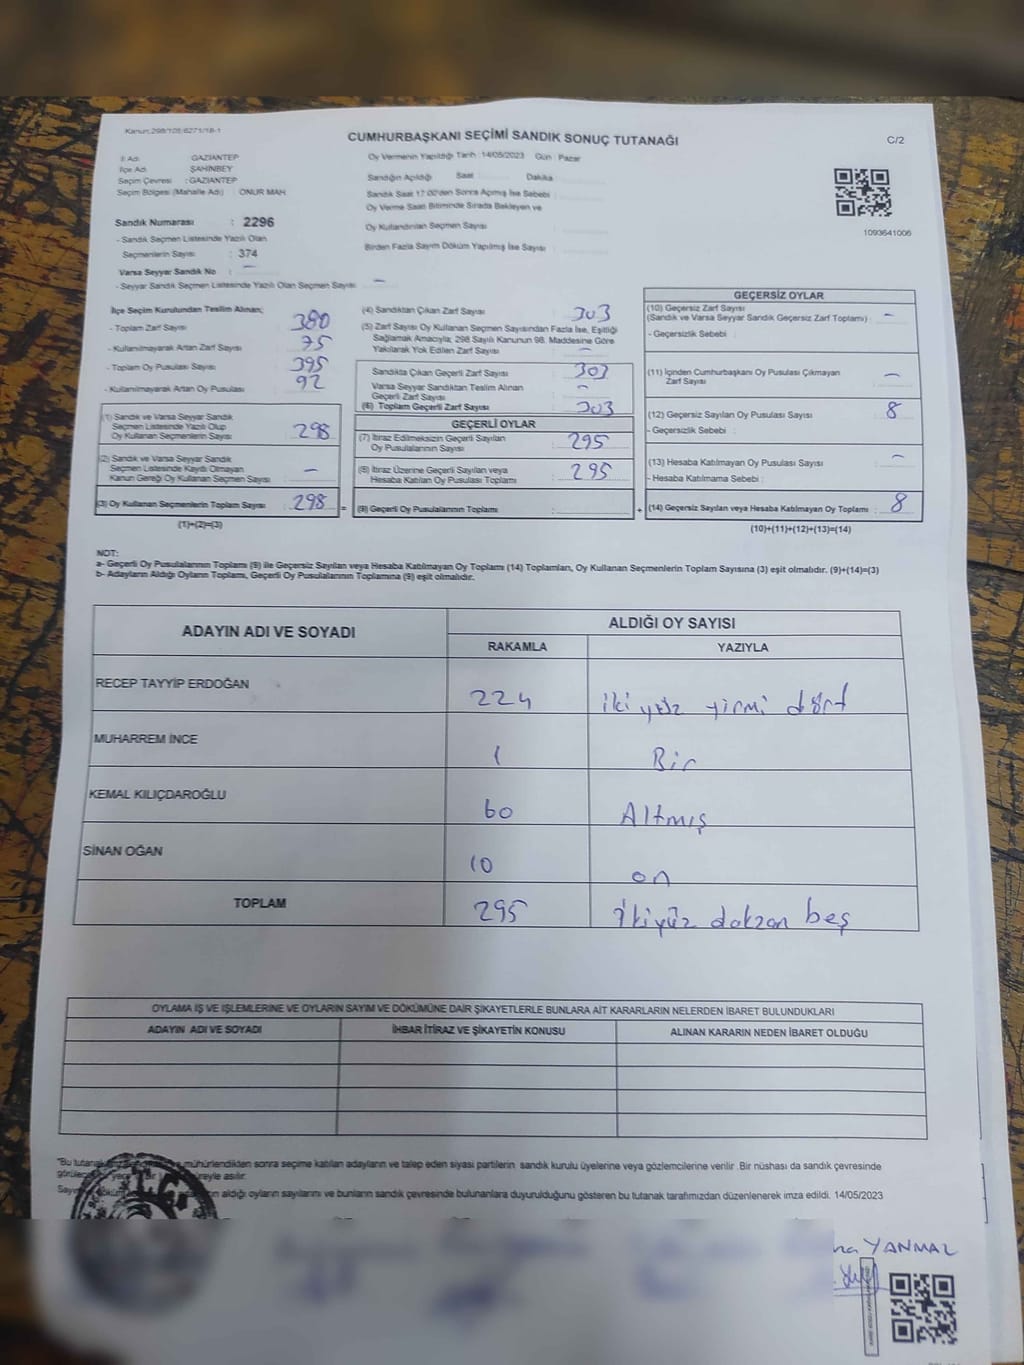 Kanun:298/105:6271/18-1
CUMHURBAŞKANI SEÇİMİ SANDIK SONUÇ TUTANAĞI
C/2
İl Adı GAZİANTEP
İlçe Adı ŞAHİNBEY
Seçim Çevresi : GAZİANTEP
Seçim Bölgesi (Mahalle Adı) : ONUR MAH
Sandık Numarası : 2296
- Sandık Seçmen Listesinde Yazılı Olan
Seçmenlerin Sayısı : 374
Varsa Seyyar Sandık No : —
- Seyyar Sandık Seçmen Listesinde Yazılı Olan Seçmen Sayısı : —
Oy Vermenin Yapıldığı Tarih :14/05/2023 Gün : Pazar
Sandığın Açıldığı Saat Dakika
Sandık Saat 17:00'den Sonra Açılmış İse Sebebi :
Oy Verme Saati Bitiminde Sırada Bekleyen ve
Oy Kullandırılan Seçmen Sayısı
Birden Fazla Sayım Döküm Yapılmış İse Sayısı :
1093641006
İlçe Seçim Kurulundan Teslim Alınan;
- Toplam Zarf Sayısı 380
- Kullanılmayarak Artan Zarf Sayısı 75
- Toplam Oy Pusulası Sayısı 395
- Kullanılmayarak Artan Oy Pusulası 92
(1) Sandık ve Varsa Seyyar Sandık
Seçmen Listesinde Yazılı Olup
Oy Kullanan Seçmenlerin Sayısı : 298
(2) Sandık ve Varsa Seyyar Sandık
Seçmen Listesinde Kayıtlı Olmayan
Kanun Gereği Oy Kullanan Seçmen Sayısı : —
(3) Oy Kullanan Seçmenlerin Toplam Sayısı : 298 =
(1)+(2)=(3)
(4) Sandıktan Çıkan Zarf Sayısı : 303
(5) Zarf Sayısı Oy Kullanan Seçmen Sayısından Fazla İse, Eşitliği
Sağlamak Amacıyla; 298 Sayılı Kanunun 98. Maddesine Göre
Yakılarak Yok Edilen Zarf Sayısı : —
Sandıkta Çıkan Geçerli Zarf Sayısı : 303
Varsa Seyyar Sandıktan Teslim Alınan
Geçerli Zarf Sayısı : —
(6) Toplam Geçerli Zarf Sayısı : 303
GEÇERLİ OYLAR
(7) İtiraz Edilmeksizin Geçerli Sayılan
Oy Pusulalarının Sayısı : 295
(8) İtiraz Üzerine Geçerli Sayılan veya
Hesaba Katılan Oy Pusulası Toplamı : 295
(9) Geçerli Oy Pusulalarının Toplamı : +
GEÇERSİZ OYLAR
(10) Geçersiz Zarf Sayısı
(Sandık ve Varsa Seyyar Sandık Geçersiz Zarf Toplamı) : —
- Geçersizlik Sebebi :
(11) İçinden Cumhurbaşkanı Oy Pusulası Çıkmayan
Zarf Sayısı : —
(12) Geçersiz Sayılan Oy Pusulası Sayısı : 8
- Geçersizlik Sebebi :
(13) Hesaba Katılmayan Oy Pusulası Sayısı : —
- Hesaba Katılmama Sebebi :
(14) Geçersiz Sayılan veya Hesaba Katılmayan Oy Toplamı : 8
(10)+(11)+(12)+(13)=(14)
NOT:
a- Geçerli Oy Pusulalarının Toplamı (9) ile Geçersiz Sayılan veya Hesaba Katılmayan Oy Toplamı (14) Toplamları, Oy Kullanan Seçmenlerin Toplam Sayısına (3) eşit olmalıdır. (9)+(14)=(3)
b- Adayların Aldığı Oyların Toplamı, Geçerli Oy Pusulalarının Toplamına (9) eşit olmalıdır.
ADAYIN ADI VE SOYADI ALDIĞI OY SAYISI
RAKAMLA YAZIYLA
RECEP TAYYİP ERDOĞAN 224 iki yüz yirmi dört
MUHARREM İNCE 1 Bir
KEMAL KILIÇDAROĞLU 60 Altmış
SİNAN OĞAN 10 on
TOPLAM 295 ikiyüz dokzan beş
OYLAMA İŞ VE İŞLEMLERİNE VE OYLARIN SAYIM VE DÖKÜMÜNE DAİR ŞİKAYETLERLE BUNLARA AİT KARARLARIN NELERDEN İBARET BULUNDUKLARI
ADAYIN ADI VE SOYADI İHBAR İTİRAZ VE ŞİKAYETİN KONUSU ALINAN KARARIN NEDEN İBARET OLDUĞU
"Bu tutanak mühürlendikten sonra seçime katılan adayların ve talep eden siyasi partilerin sandık kurulu üyelerine veya gözlemcilerine verilir .Bir nüshası da sandık çevresinde
asılır.
aldığı oyların sayılarını ve bunların sandık çevresinde bulunanlara duyurulduğunu gösteren bu tutanak tarafımızdan düzenlenerek imza edildi. 14/05/2023
YANMAL